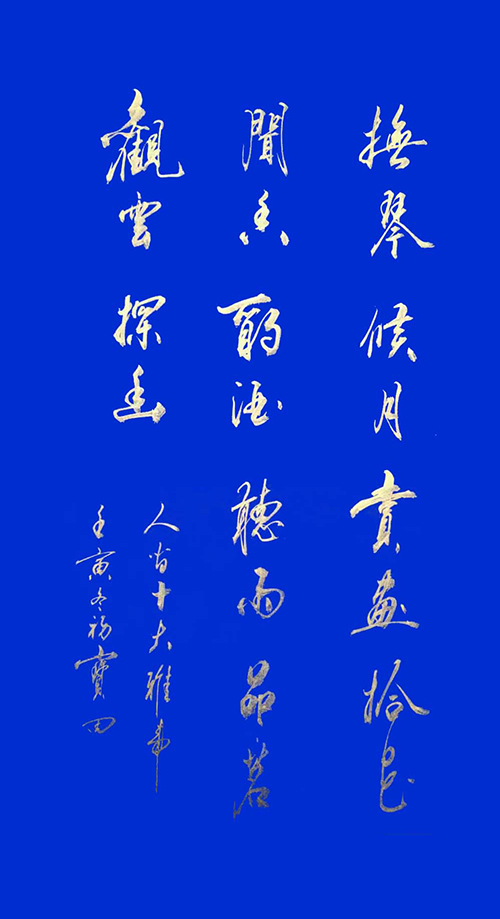 撫琴候月賞畫拾花
聞香酌酒聽雨品茗
觀雲探幽
人省十大雅事
壬寅冬初寶田